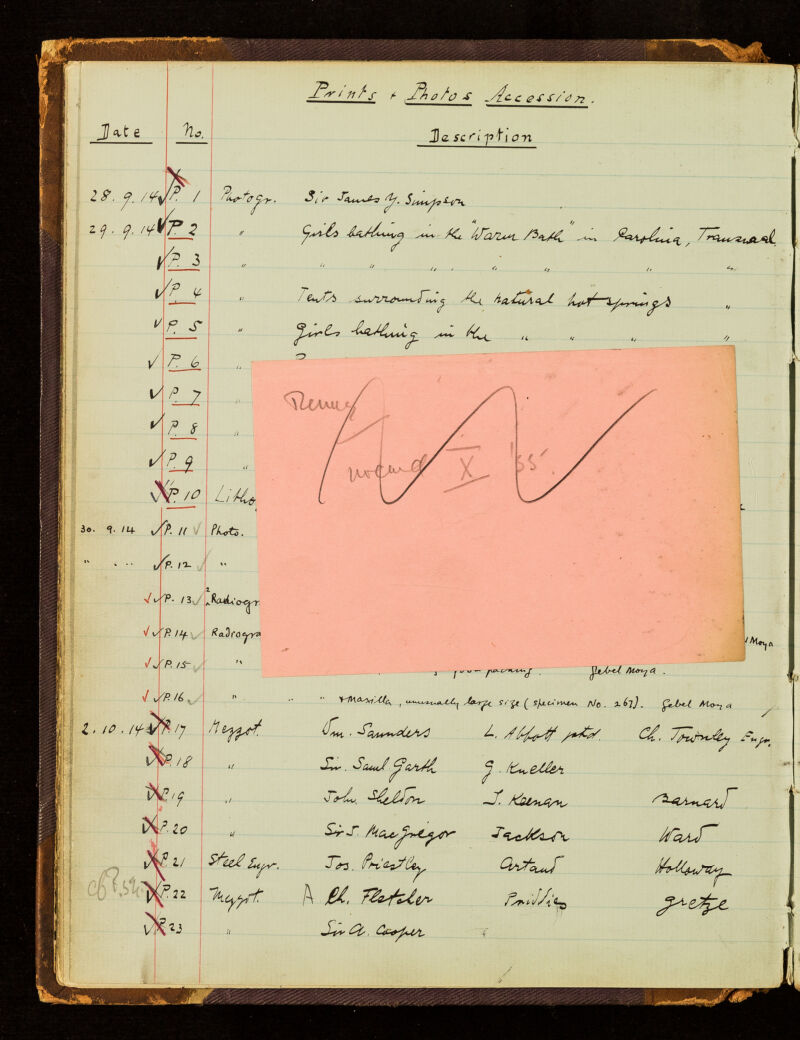 Prints + Photos Accession.
Date No. Description
28. 9. 14 P. 1 Photogr. Sir James Y. Simpson
29. 9. 14 P. 2 " Girls bathing in the "Warm Bath" in Carolina, Transvaal
P. 3 " " " " " " " "
P. 4 " Tents surrounding the natural hot springs "
P. 5 " Girls bathing in the " " " "
P. 6 "
P. 7 "
P. 8 "
P. 9 "
P. 10 Litho
30. 9. 14 P. 11 Photo.
" " " P. 12 "
P. 13 2 Radiogr
P. 14 Radiogra Moya
P. 15 " packing. Jebel Moya.
P. 16 " " " + Maxilla, unusually large size (specimen No. 267). Jebel Moya
2. 10. 14 P. 17 Mezzot. Wm. Saunders L. Abbott ptd. Ch. Townley Engr.
P. 18 " Sir. Saml Garth G. Kneller
P. 19 " John Sheldon J. Keenan Barnard
P. 20 " Sir J. MacGregor Jackson Ward
P. 21 Steel Engr. Jos. Priestley Artaud Holloway
P. 22 Mezzot. A Ch. Fletcher Priddies gretze
P. 23 " Sir A. Cooper
no card X '55.